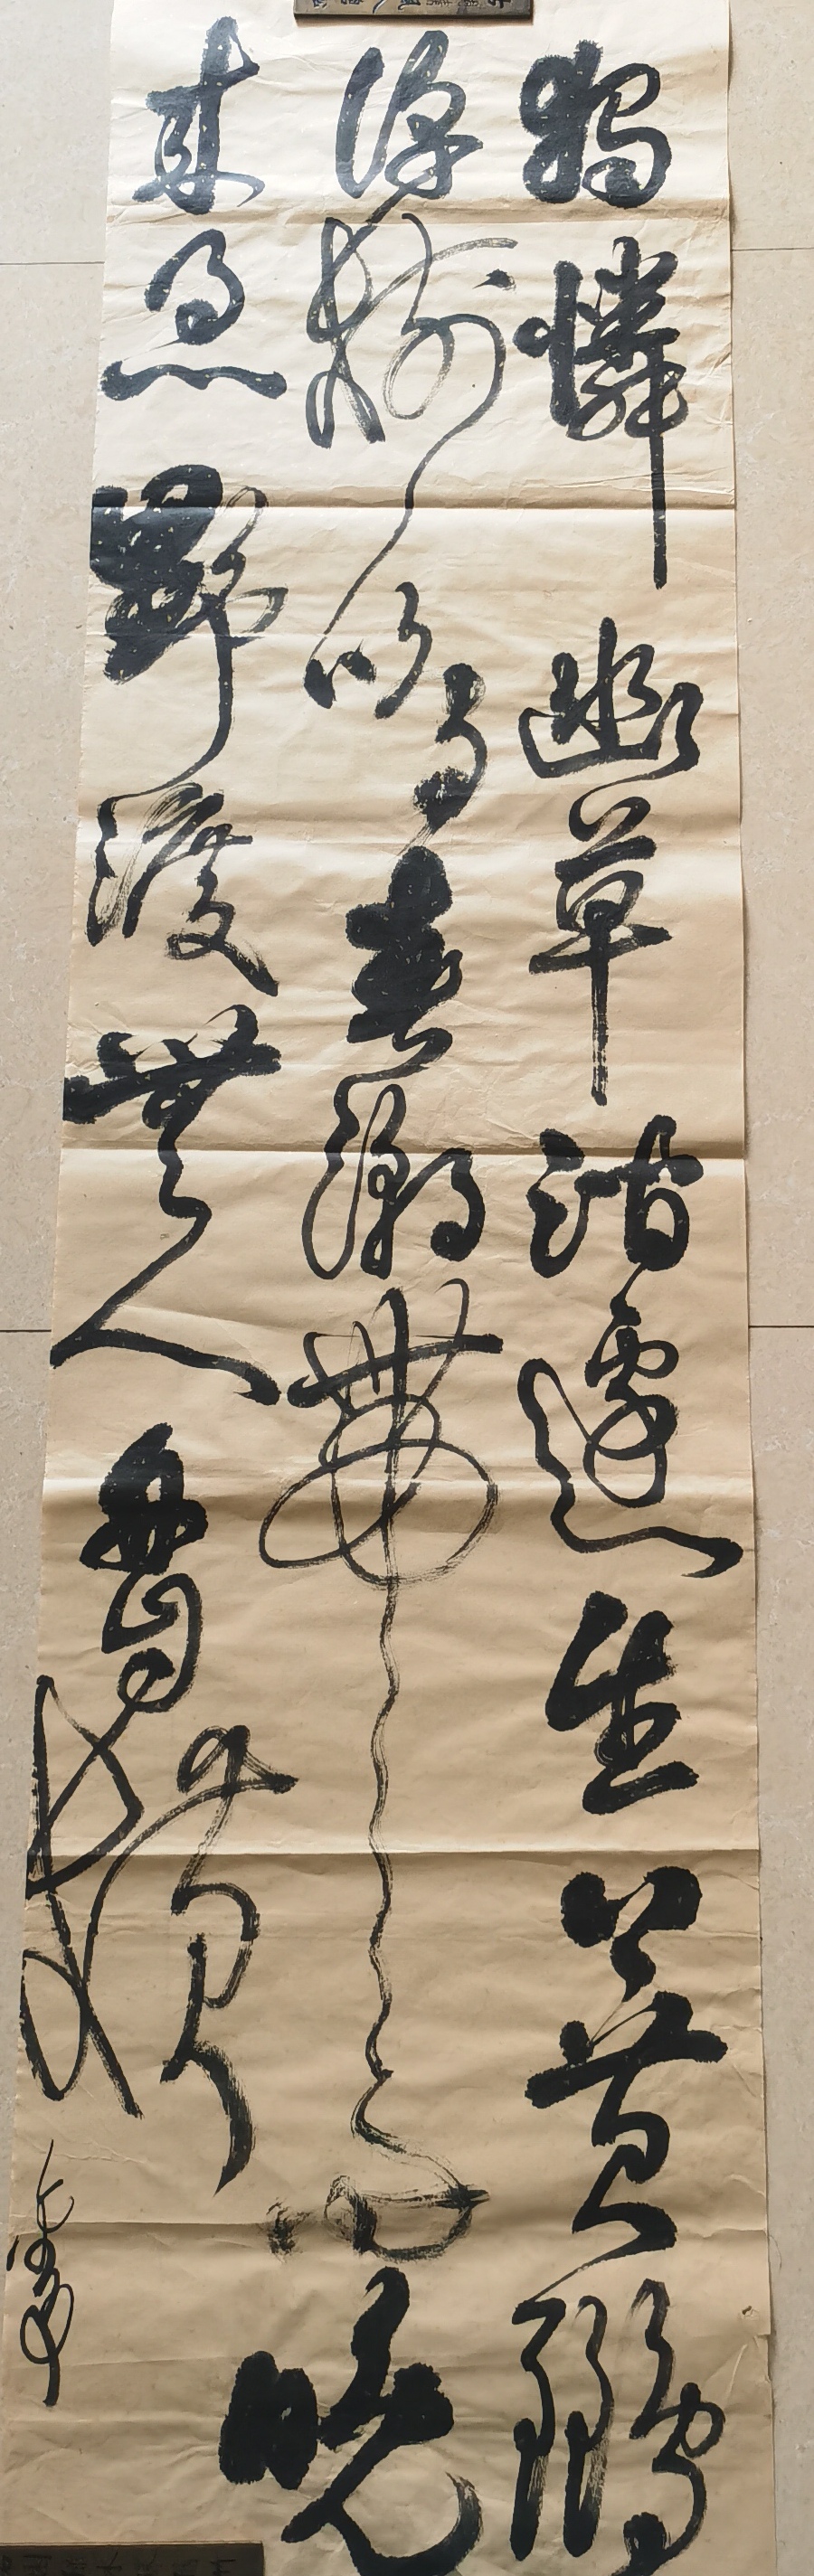 獨憐幽草澗邊生上黃鸝
深樹鳴春潮帶雨晚
來急野渡無人舟自橫